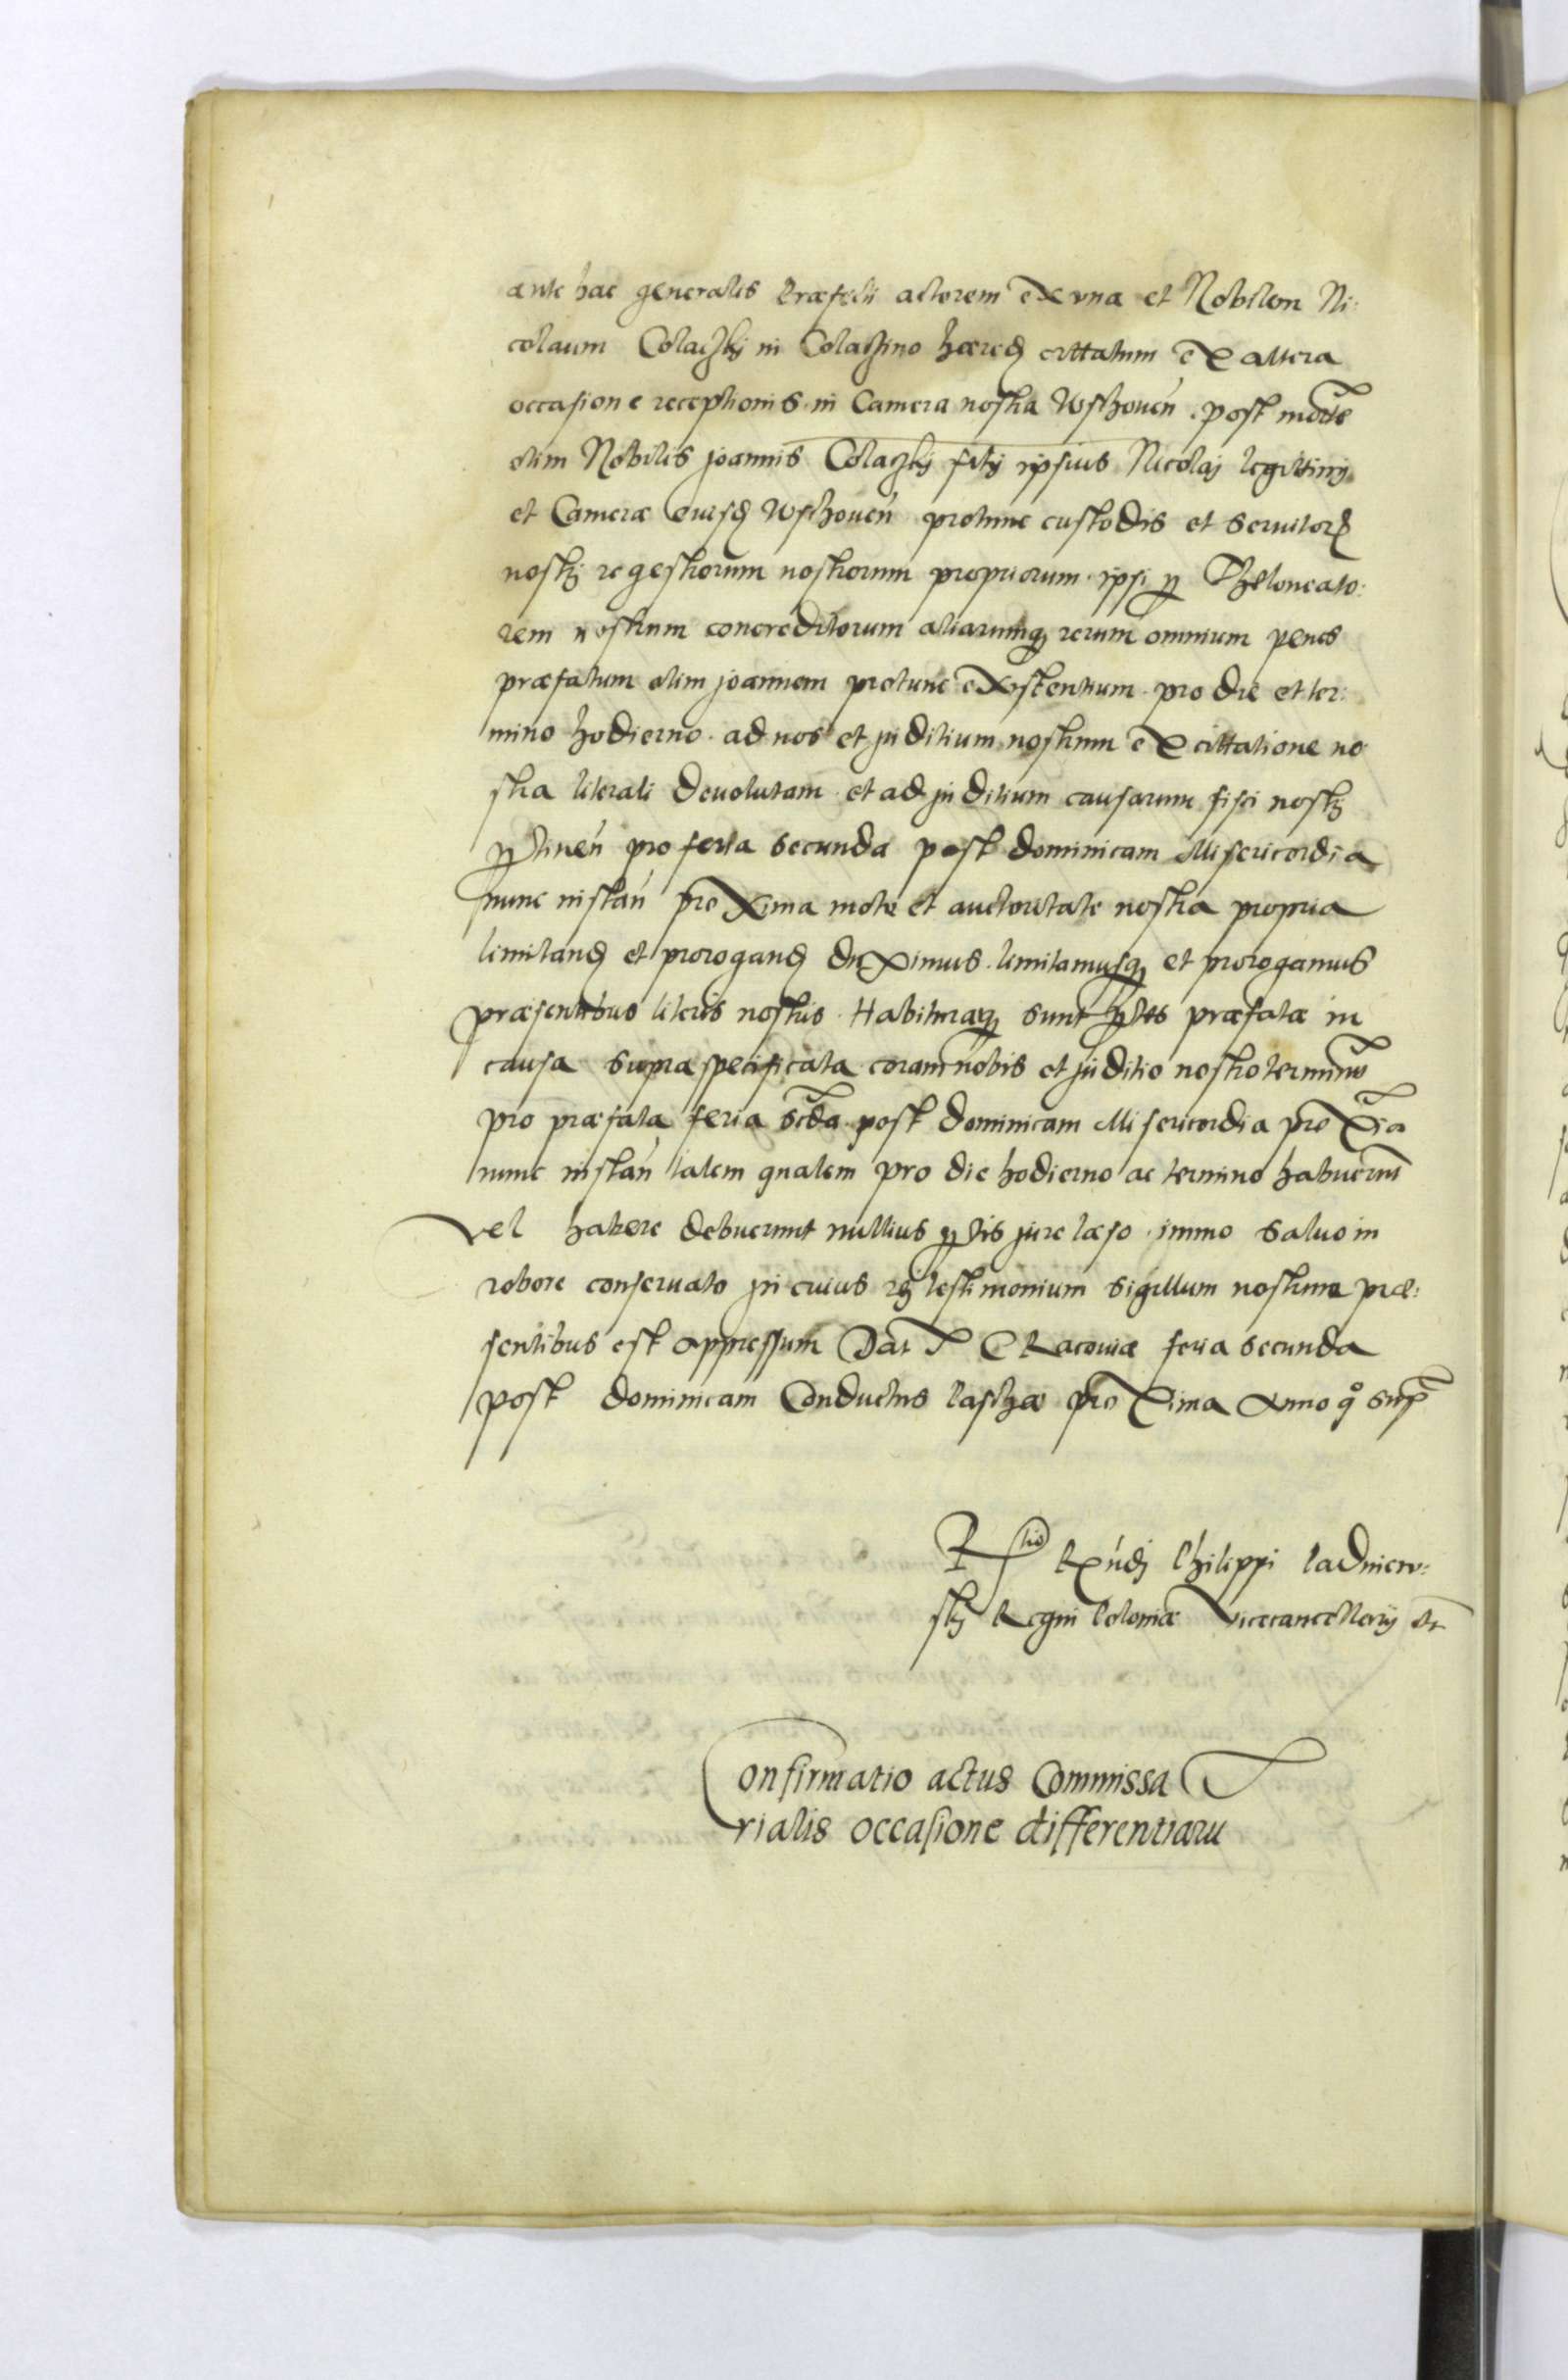 ante hac generalis Præfecti actorem ex vna et Nobilem Ni:
colaum Colaczkj in Colaczino hæred cittatum ex altera
occasione receptionis in Camera nostra Wschouen. post morte
olim Nobilis joannis Colaczkj filij ipsius Nicolaj legittimj
et Cameræ eiusd Wschouen protunc custodis et seruitor
nostrj regestrorum nostrorum propriorum ipsi p Theloneato:
rem nostrum concreditorum aliarumq rerum omnium penes
præfatum olim joannem protunc existentium pro die et ter:
mino hodierno ad nos et juditium nostrum ex cittatione no
stra literali deuolutam et ad juditium causarum fisci nostrj
ptinen pro feria secunda post dominicam Misericordia
nunc instan proxima motu et auctoritate nostra propria
limitand et prorogand duximus. limitamusq et prorogamus
præsentibus literis nostris. Habituræq sunt ptes præfatæ in
causa supra specificata coram nobis et juditio nostro terminu
pro præfata feria scda post dominicam Misericordia proxia
nunc instan talem qualem pro die hodierno ac termino habuerunt
vel habere debuerunt nullius ptis jure læso immo saluo in
robore conseruato jn cuius rej testimonium sigillum nostrum præ:
sentibus est appressum Dat Cracouiæ feria secunda
post dominicam Conductus Paschæ proxima Anno qo sup
R tio Rndj Philippi Padniew:
skj Regni Poloniæ Vicecancellarij etc
Confirmatio actus Commissa
rialis occasione differentiaru